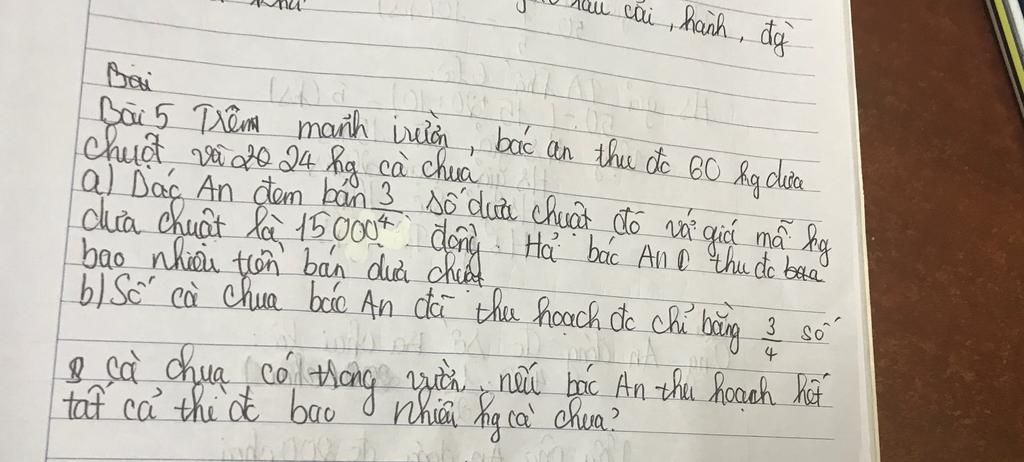 rau cải, hành, đg
Bài
Bài 5 Trên mảnh vườn, bác an thu đc 60 kg dưa
chuột và 24 kg cà chua
a) Bác An đem bán 3/4 số dưa chuột đó với giá mỗi kg
dưa chuột là 15000 đồng. Hỏi bác An thu đc
bao nhiêu tiền bán dưa chuột
b) Số cà chua bác An đã thu hoạch đc chỉ bằng 3/4 số
cà chua có trong vườn, nếu bác An thu hoạch hết
tất cả thì đc bao nhiêu kg cà chua?